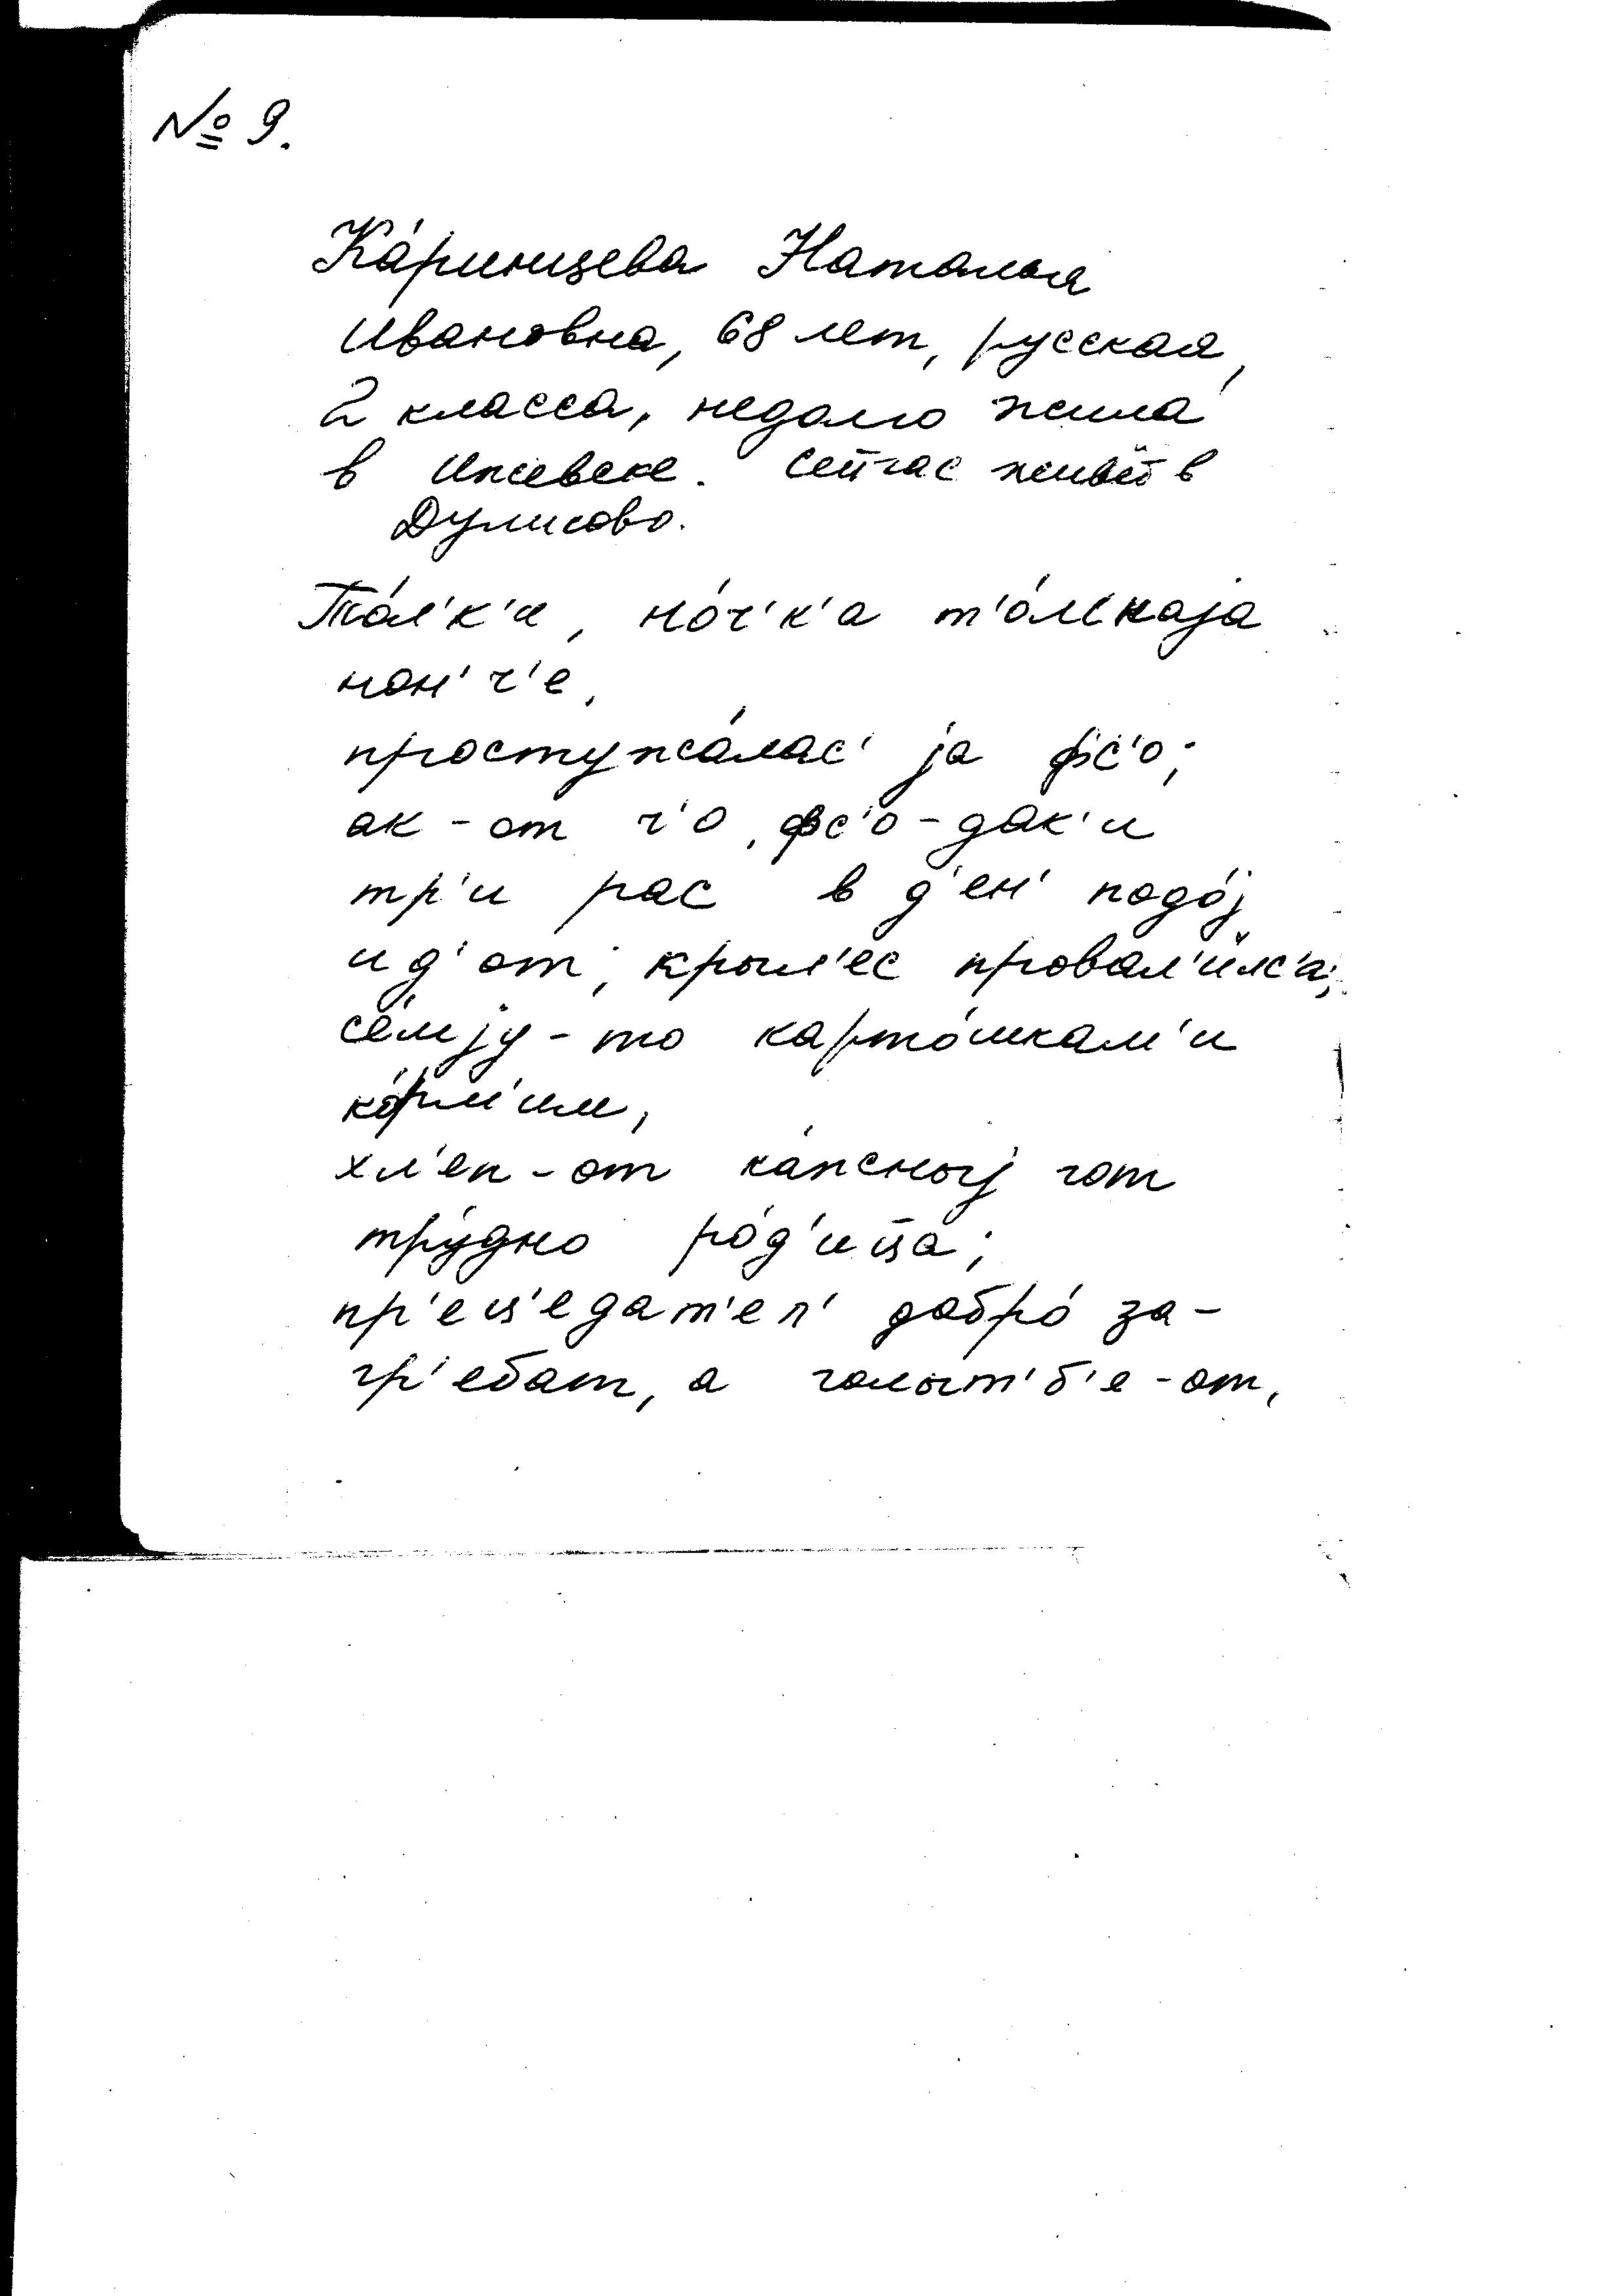 № 9.
Ка́ринцева Наталья
Ивановна, 68 лет, русская,
2 класса, недолго жила
в Ижевске. Сейчас живёт в
то́л'к'и, но́ч'к'а т'о́мнаjа
нон'ч'е,
простужа́лас' jа фс'о;
ак-от ч'о, фс'о-дак'и
тр'и рас в д'ен' подо́j
ид'от; крыл'ес провал'и́лс'а;
се́мjу-то карто́шкам'и
ко́рм'им,
хл'еп-от ка́жныj гот
тру́дно ро́д'ица;
пр'ец'едат'ел' добро́ за-
гр'ебат, а голыт'б'е-от,